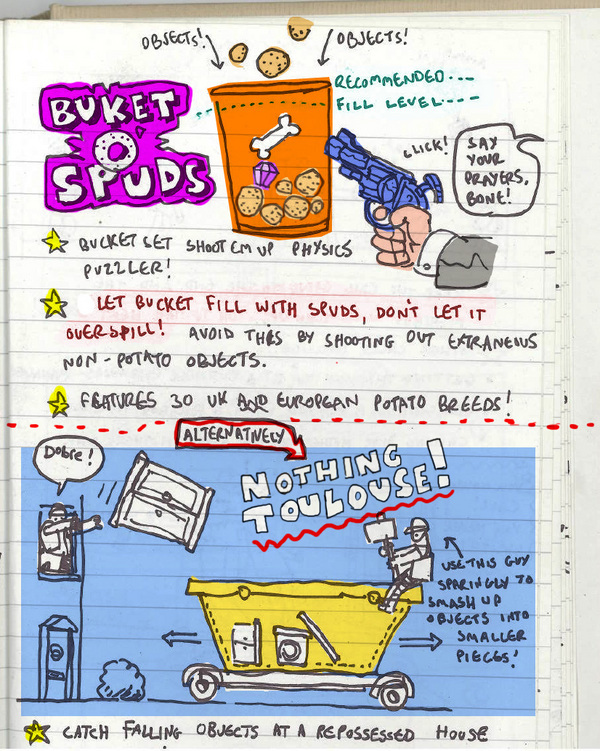 OBJECTS!
OBJECTS!
RECOMMENDED...
FILL LEVEL....
BUKET
O'
SPUDS
CLICK!
SAY
YOUR
PRAYERS,
BONE!
BUCKET SET SHOOT EM UP PHYSICS
PUZZLER!
LET BUCKET FILL WITH SPUDS, DON'T LET IT
OVERSPILL! AVOID THIS BY SHOOTING OUT EXTRANEOUS
NON-POTATO OBJECTS.
FEATURES 30 UK AND EUROPEAN POTATO BREEDS!
ALTERNATIVELY
Dobre!
NOTHING
TOULOUSE!
USE THIS GUY
SPARINGLY TO
SMASH UP
OBJECTS INTO
SMALLER
PIECES!
CATCH FALLING OBJECTS AT A REPOSSESSED HOUSE